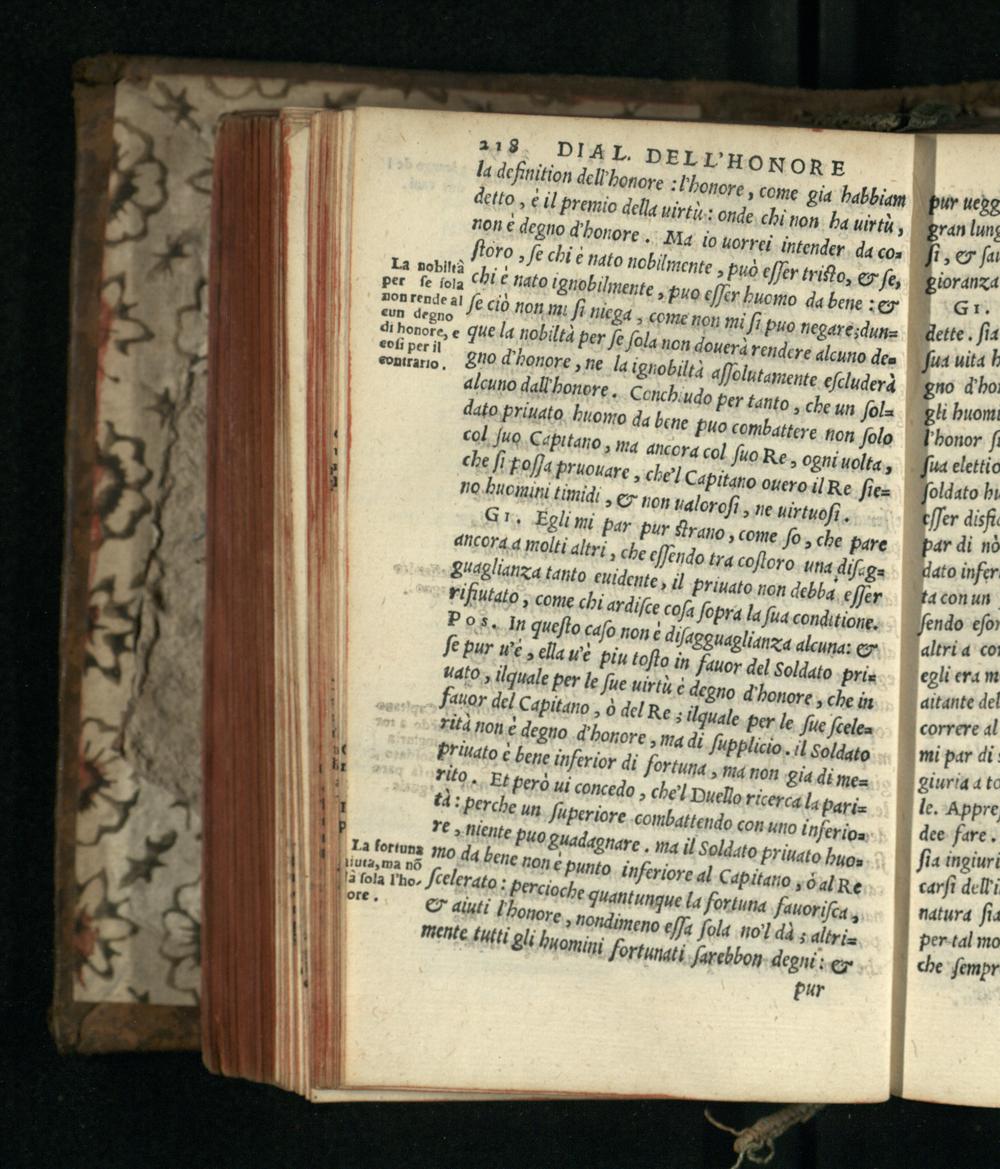 218 DIAL. DELL'HONORE
la definition dell'honore : l'honore, come gia habbiam
detto, è il premio della uirtù : onde chi non ha uirtù,
non è degno d'honore. Ma io uorrei intender da co=
ſtoro, ſe chi è nato nobilmente, può eſſer triſto, & ſe,
chi è nato ignobilmente, puo eſſer huomo da bene : &
ſe ciò non mi ſi niega, come non mi ſi puo negare; dun=
que la nobiltà per ſe ſola non douerà rendere alcuno de=
gno d'honore, ne la ignobiltà aſſolutamente eſcluderà
alcuno dall'honore. Conchiudo per tanto, che un ſol=
dato priuato huomo da bene puo combattere non ſolo
col ſuo Capitano, ma ancora col ſuo Re, ogni uolta,
che ſi poſſa pruouare, che'l Capitano ouero il Re ſie=
no huomini timidi, & non ualoroſi, ne uirtuoſi.
GI. Egli mi par pur ſtrano, come ſo, che pare
ancora a molti altri, che eſſendo tra coſtoro una diſag=
guaglianza tanto euidente, il priuato non debba eſſer
rifiutato, come chi ardiſce coſa ſopra la ſua conditione.
POS. In queſto caſo non è diſagguaglianza alcuna: &
ſe pur u'è, ella u'è piu toſto in fauor del Soldato pri=
uato, ilquale per le ſue uirtù è degno d'honore, che in
fauor del Capitano, ò del Re; ilquale per le ſue ſcele=
rità non è degno d'honore, ma di ſupplicio. il Soldato
priuato è bene inferior di fortuna, ma non gia di me=
rito. Et però ui concedo, che'l Duello ricerca la pari=
tà : perche un ſuperiore combattendo con uno inferio=
re, niente puo guadagnare. ma il Soldato priuato huo=
mo da bene non è punto inferiore al Capitano, ò al Re
ſcelerato : percioche quantunque la fortuna fauoriſca,
& aiuti l'honore, nondimeno eſſa ſola no'l dà ; altri=
mente tutti gli huomini fortunati ſarebbon degni : &
pur
La nobiltà
per ſe ſola
non rende al
cun degno
di honore, e
coſi per il
contrario.
La fortuna
iuta, ma nō
à ſola l'ho-
ore.
pur uegg
gran lung
ſi, & ſau
gioranza
GI.
dette. ſia
ſua uita h
gno d'ho
gli huomi
l'honor ſi
ſua elettio
ſoldato hu
eſſer disfi
par di nò
dato infer
ta con un
ſendo eſor
altri a co
egli era m
aitante del
correre al
mi par di
giuria a to
le. Appre
dee fare.
ſia ingiuri
carſi dell'i
natura ſia
per tal mo
che ſempr